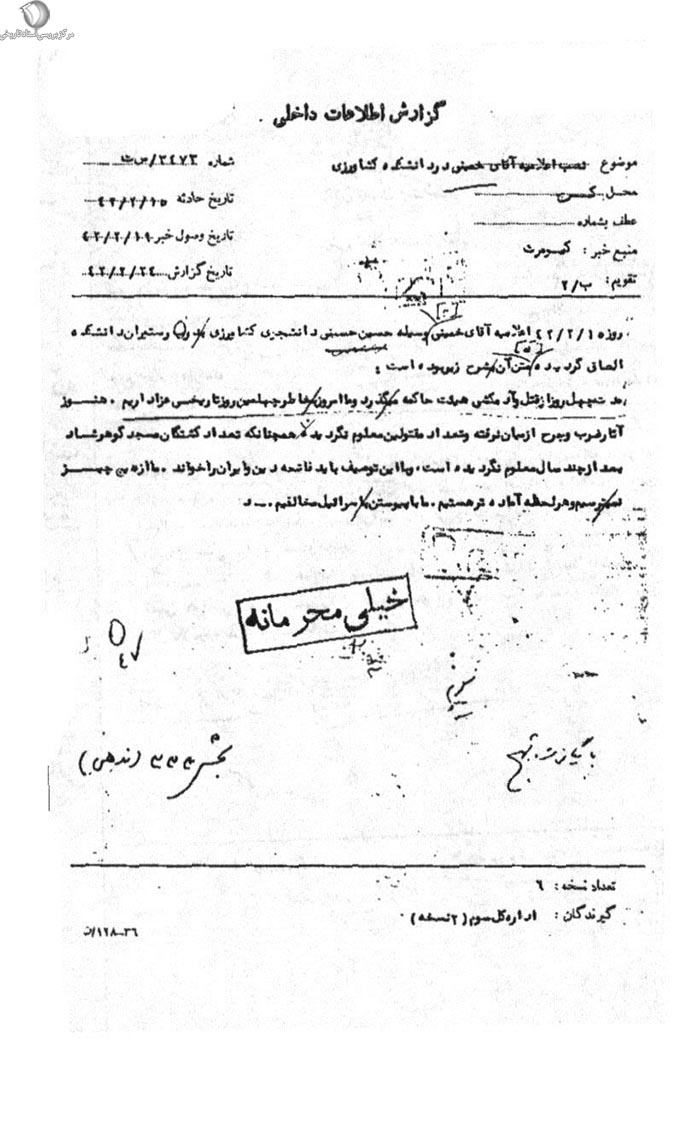 مرکز بررسی اسناد تاریخی
گزارش اطلاعات داخلی
موضوع نصب اعلامیه آقای خمینی در دانشکده کشاورزی
شماره ۳۴۷۳/س ت
محل کرج
تاریخ حادثه ۴۲/۲/۱۵
عطف بشماره
تاریخ وصول خبر ۴۲/۲/۱۹
منبع خبر : کیومرث
تاریخ گزارش ۴۲/۲/۲۴
تقویم : ب/۲
روز ۴۲/۲/۱۵ اعلامیه آقای خمینی وسیله حسین حسینی دانشجوی کشاورزی رستوران دانشکده
الصاق گردیده متن آن بشرح زیر بوده است :
چهل روز از قتل و آدمکشی هیئت حاکمه میگذرد و ما امروز بخاطر چهلمین روز تاریخی عزاداریم . هنوز
آثار ضرب و جرح از میان نرفته و تعداد مقتولین معلوم نگردیده همچنانکه تعداد کشتگان مسجد گوهرشاد
بعد از چند سال معلوم نگردیده است ، و با این توصیف باید فاتحه دین و ایران را خواند . ما از هیچ چیز
نمیترسیم و هر لحظه آماده تر هستیم . ما با پیوستن با اسرائیل مخالفیم .
خیلی محرمانه
بخش ۳۳۳ (مذهبی)
بایگانی شود
تعداد نسخه : ۶
گیرندگان : اداره کل سوم (۲ نسخه)
۳۶-۱۲۸/ن